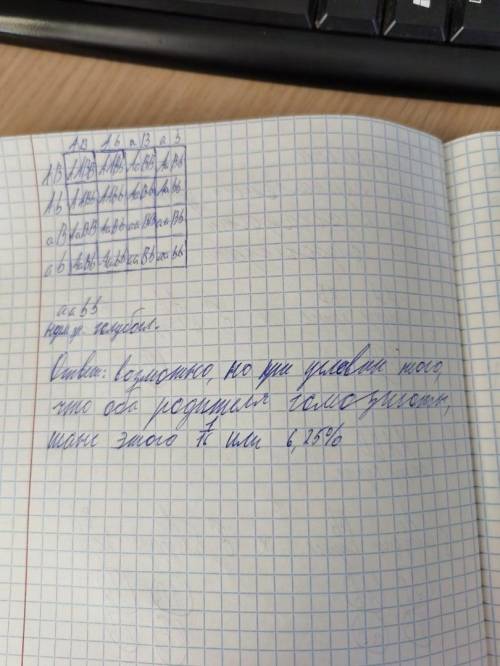 AB Ab aB ab
AB AABB AABb AaBB AaBb
Ab AABb AAbb AaBb Aabb
aB AaBB AaBb aaBB aaBb
ab AaBb Aabb aaBb aabb
aabb
голубогл.
Ответ: возможно, но при условии того,
что оба родителя гомозиготы,
шанс этого 1/16 или 6,25%